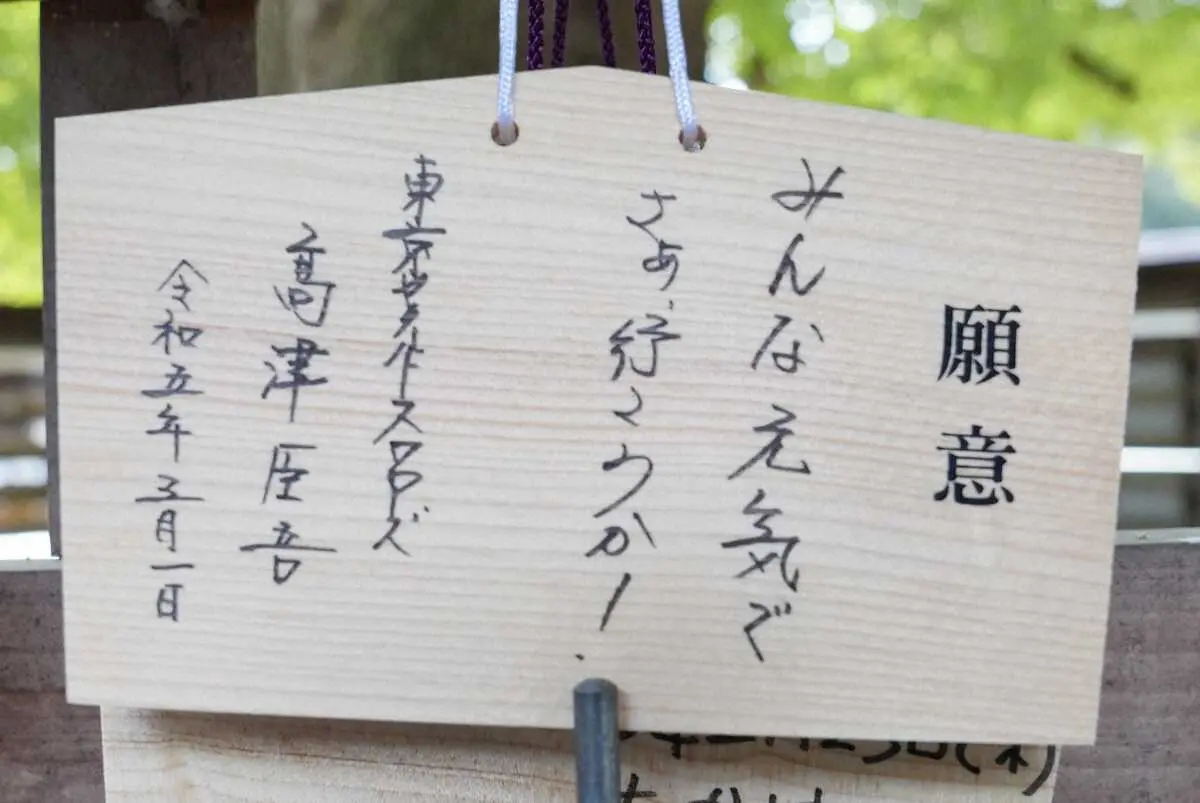 願意
みんな元気で
さぁ、行こうか!
東京ヤクルトスワローズ
高津臣吾
令和五年五月一日